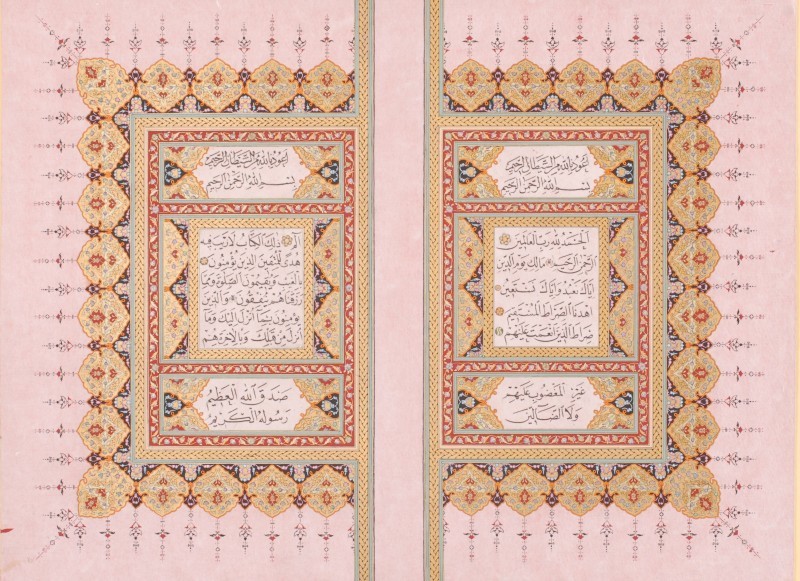 اعوذ بالله من الشيطان الرجيم
بسم الله الرحمن الرحيم
الحمد لله رب العالمين
الرحمن الرحيم مالك يوم الدين
اياك نعبد واياك نستعين
اهدنا الصراط المستقيم
صراط الذين انعمت عليهم
غير المغضوب عليهم
ولا الضالين
اعوذ بالله من الشيطان الرجيم
بسم الله الرحمن الرحيم
الم ذلك الكتاب لا ريب فيه
هدى للمتقين الذين يؤمنون
بالغيب ويقيمون الصلوة ومما
رزقناهم ينفقون والذين
يؤمنون بما انزل اليك وما
انزل من قبلك وبالاخرة هم
صدق الله العظيم
رسوله الكريم